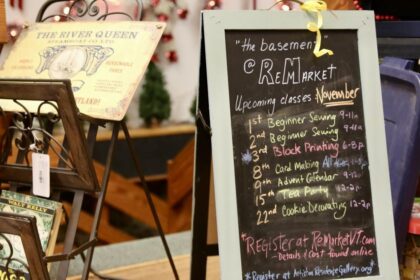 THE RIVER QUEEN
STEAMBOAT CO. LTD.
"the basement"
@ ReMarket
Upcoming classes: November
1st Beginner Sewing 9-11A
2nd Beginner Sewing 9-11A
3rd Block Printing 6-8p
8th Card Making All day
9th Advent Calendar
15th Tea Party 12-2p
22nd Cookie Decorating 12-2p
*Register at ReMarketVT.com
- Details & Cost found online
*Register at